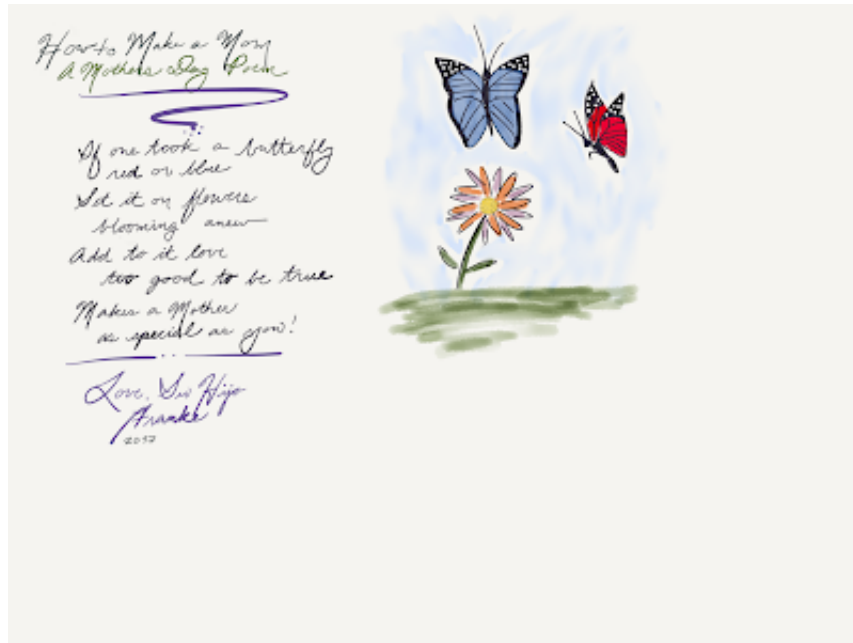 How to Make a Mom
A Mothers Day Poem
If one took a butterfly
red or blue
Set it on flowers
blooming anew
Add to it love
too good to be true
Makes a Mother
as special as you!
Love, Su Hijo